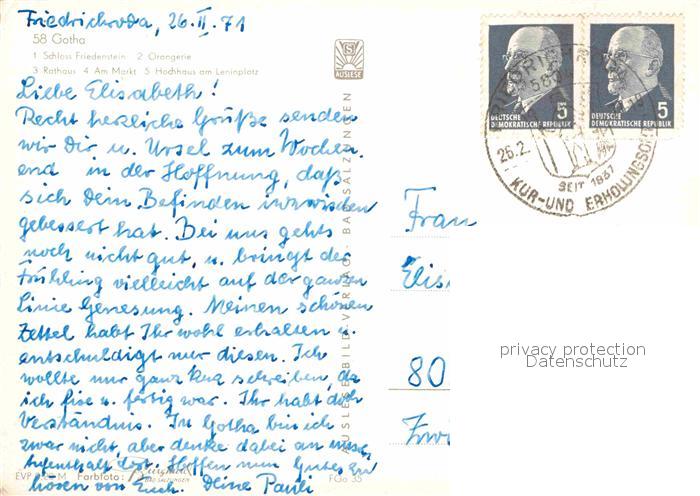 Friedrichroda, 26. II. 71
58 Gotha
1 Schloss Friedenstein 2 Orangerie
3 Rathaus 4 Am Markt 5 Hochhaus am Leninplatz
AUSLESE
Liebe Elisabeth!
Recht herzliche Grüße senden
wir Dir u. Ursel zum Wochen-
end in der Hoffnung, daß
sich Dein Befinden inzwischen
gebessert hat. Bei uns gehts
noch nicht gut, u. bringt der
Frühling vielleicht auf der ganzen
Linie Genesung. Meinen schönen
Zettel habt Ihr wohl erhalten u.
entschuldigt nur diesen. Ich
wollte nur ganz kurz schreiben, da
ich fix u. fertig war. Ihr habt doch
Verständnis. In Gotha bin ich
zwar nicht, aber denke dabei an unsern
Aufenthalt dort. Hoffen nun Gutes zu
hören von Euch. Deine Pauli
EVP M Farbfoto: BAD SALZUNGEN FGo 35
AUSLESE-BILD-VERLAG - BAD SALZUNGEN
5 DEUTSCHE DEMOKRATISCHE REPUBLIK
5 DEUTSCHE DEMOKRATISCHE REPUBLIK
26.2.
SEIT 1837
KUR-UND ERHOLUNGSORT
Frau
Elis
80
privacy protection
Datenschutz